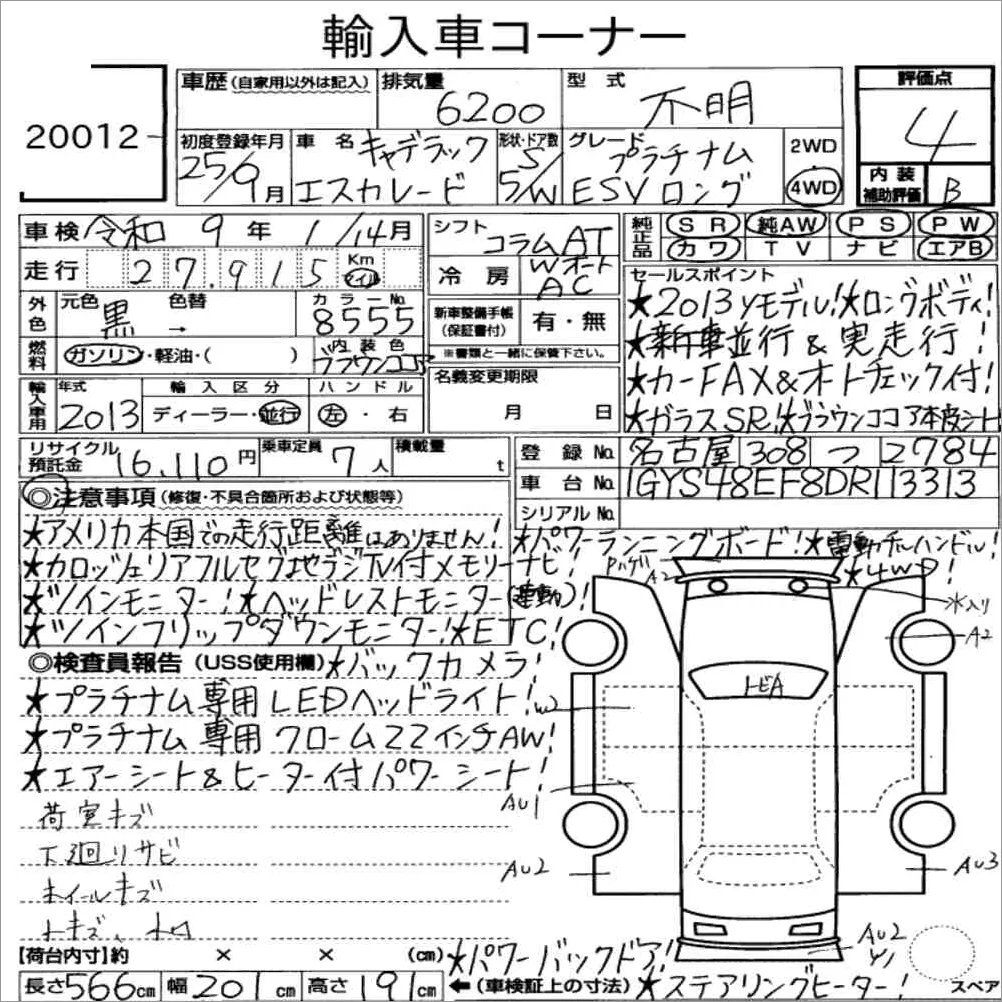 輸入車コーナー
20012
車歴(自家用以外は記入)
排気量 6200
型式 不明
評価点 4
初度登録年月 25/9月
車名 キャデラック エスカレード
形状・ドア数 S/ 5/W
グレード プラチナム ESVロング
2WD
4WD
内装補助評価 B
車検 令和 9年 1/14月
シフト コラムAT
純正品 SR 純AW PS PW
カワ TV ナビ エアB
走行 27,915 Km マイル
冷房 Wオート AC
セールスポイント
★2013yモデル!★ロングボディ!
★新車並行&実走行!
★カーFAX&オートチェック付!
★ガラスSR!★ブラウンココア本皮シート
外色 元色 黒 色替 → カラーNo. 8555
新車整備手帳(保証書付) 有・無
※書類と一緒に保管下さい。
燃料 ガソリン・軽油・( )
内装色 ブラウンココア
名義変更期限 月 日
輸入車用 年式 2013
輸入区分 ディーラー・並行
ハンドル 左・右
リサイクル預託金 16,110円
乗車定員 7人
積載量 t
登録No. 名古屋 308 つ 2784
車台No. 1GYS48EF8DR113313
シリアルNo.
◎注意事項(修復・不具合箇所および状態等)
★アメリカ本国での走行距離はありません!
★カロッツェリアフルセグ地デジTV付メモリーナビ!
★ツインモニター!★ヘッドレストモニター(連動)!
★ツインフリップダウンモニター!★ETC!
★パワーランニングボード!★電動チルハンドル!
★4WD!
◎検査員報告(USS使用欄)★バックカメラ!
★プラチナム専用LEDヘッドライト!
★プラチナム専用クローム22インチAW!
★エアーシート&ヒーター付パワーシート!
荷室キズ
下廻りサビ
ホイールキズ
A2
入り
A2
トビA
W2
AU1
AU2
AU3
AU2
Y1
【荷台内寸】約 × × (cm)
★パワーバックドア!
長さ566cm 幅201cm 高さ191cm
←(車検証上の寸法)
★ステアリングヒーター!
スペア